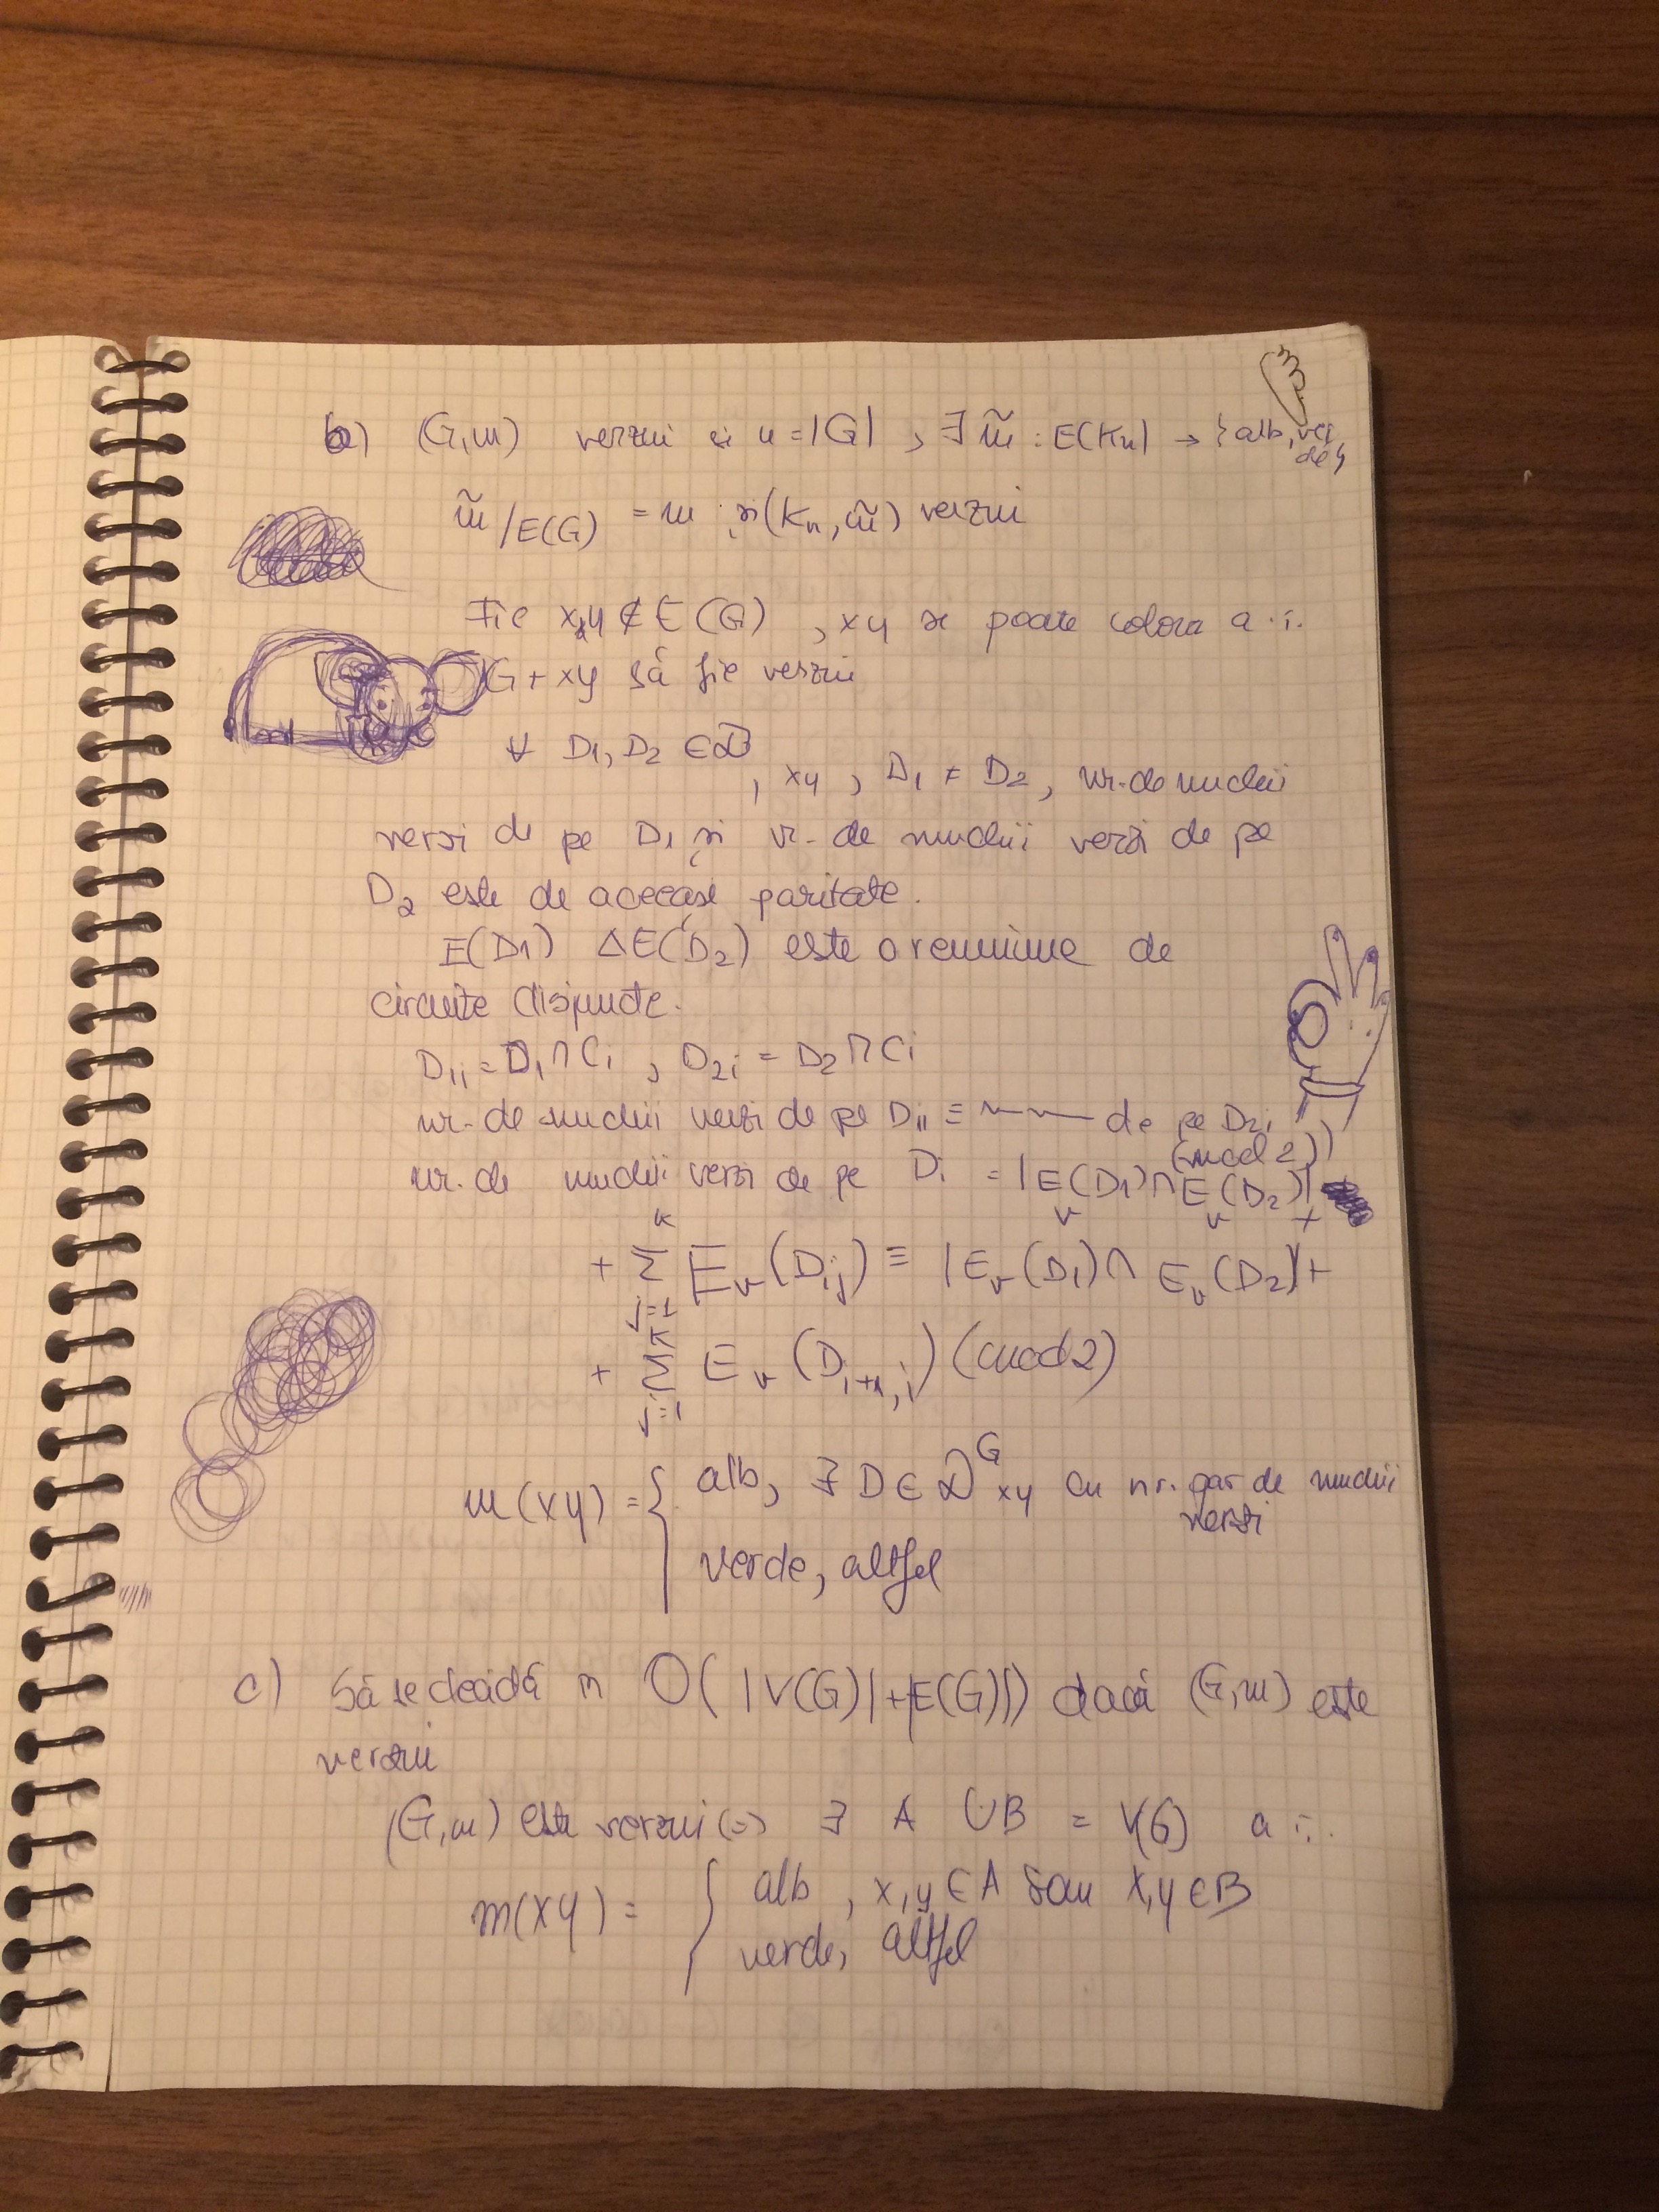 b) (G,m) verzui și n = |G| , ∃ m̃ : E(Kn) → {alb, ver
de}
m̃/E(G) = m și (Kn, m̃) verzui
Fie x,y ∉ E(G) , xy se poate colora a.î.
G + xy să fie verzui
∀ D1, D2 ∈ D , xy , D1 ≠ D2, nr. de muchii
verzi de pe D1 și nr. de muchii verzi de pe
D2 este de aceeași paritate.
E(D1) Δ E(D2) este o reuniune de
circuite disjuncte.
D1i = D1 ∩ Ci , D2i = D2 ∩ Ci
nr. de muchii verzi de pe D1i ≡ —"— de pe D2i
(mod 2)
nr. de muchii verzi de pe Di = |Ev(D1) ∩ Ev(D2)| +
+ Σ_{j=1}^{k} Ev(Dij) ≡ |Ev(D1) ∩ Ev(D2)| +
+ Σ_{j=1}^{k} Ev(Di+1,j) (mod 2)
m(xy) = { alb, ∃ D ∈ D^G_xy cu nr. par de muchii
verzi
verde, altfel
c) Să se decidă în O(|V(G)| + |E(G)|) dacă (G,m) este
verzui
(G,m) este verzui (=) ∃ A ∪̇ B = V(G) a.î.
m(xy) = { alb , x,y ∈ A sau x,y ∈ B
verde, altfel